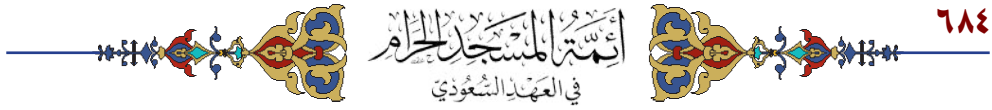 ٦٨٤
أَئِمَّةُ المَسْجَدِ الحَرَامِ
فِي العَهْدِ السُّعُودِيّ